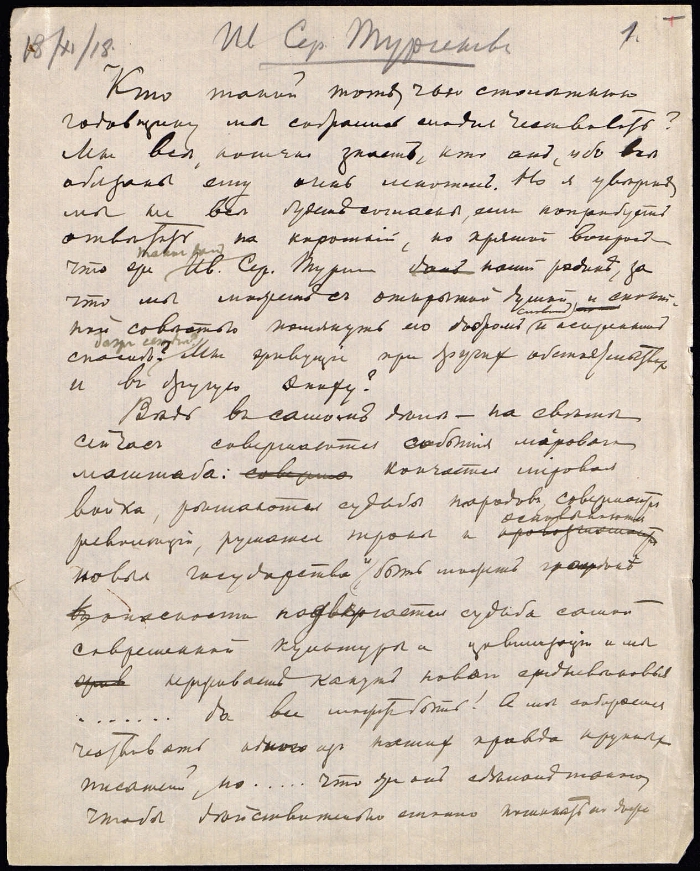 18/XI/18.
Ив Сер. Тургеневъ
1.
Кто такой тотъ, чью столѣтнюю
годовщину мы собрались сегодня чествовать?
Мы всѣ, конечно знаемъ, кто онъ, ибо всѣ
обязаны ему очень многимъ. Но я увѣренъ,
мы не всѣ будемъ согласны, если попробуемъ
отвѣтить на короткій, но прямой вопросъ
что же такое далъ Ив. Сер. Тург. далъ нашей родинѣ, за
что мы можемъ съ открытой душой, и спокой-
ной совѣстью помянуть его добромъ словомъ и искреннимъ
спасибо? Мы живущіе при другихъ обстоятельствахъ
и въ другую эпоху?
Вѣдь въ самомъ дѣлѣ – на свѣтѣ
сейчасъ совершаются событія мірового
масштаба: соверша кончается міровая
война, рѣшаются судьбы народовъ, совершаются
революціи, рушатся троны и основываются
новыя государства, быть можетъ
опасности подвергается судьба самой
современной культуры и цивилизаціи и мы
переживаемъ канунъ новаго средневѣковья
....... да все можетъ быть! А мы собираемся
чествовать одного изъ нашихъ правда крупныхъ
писателей, но ..... что же онъ сдѣлалъ такого,
чтобы дѣйствительно стоило поминать его добро